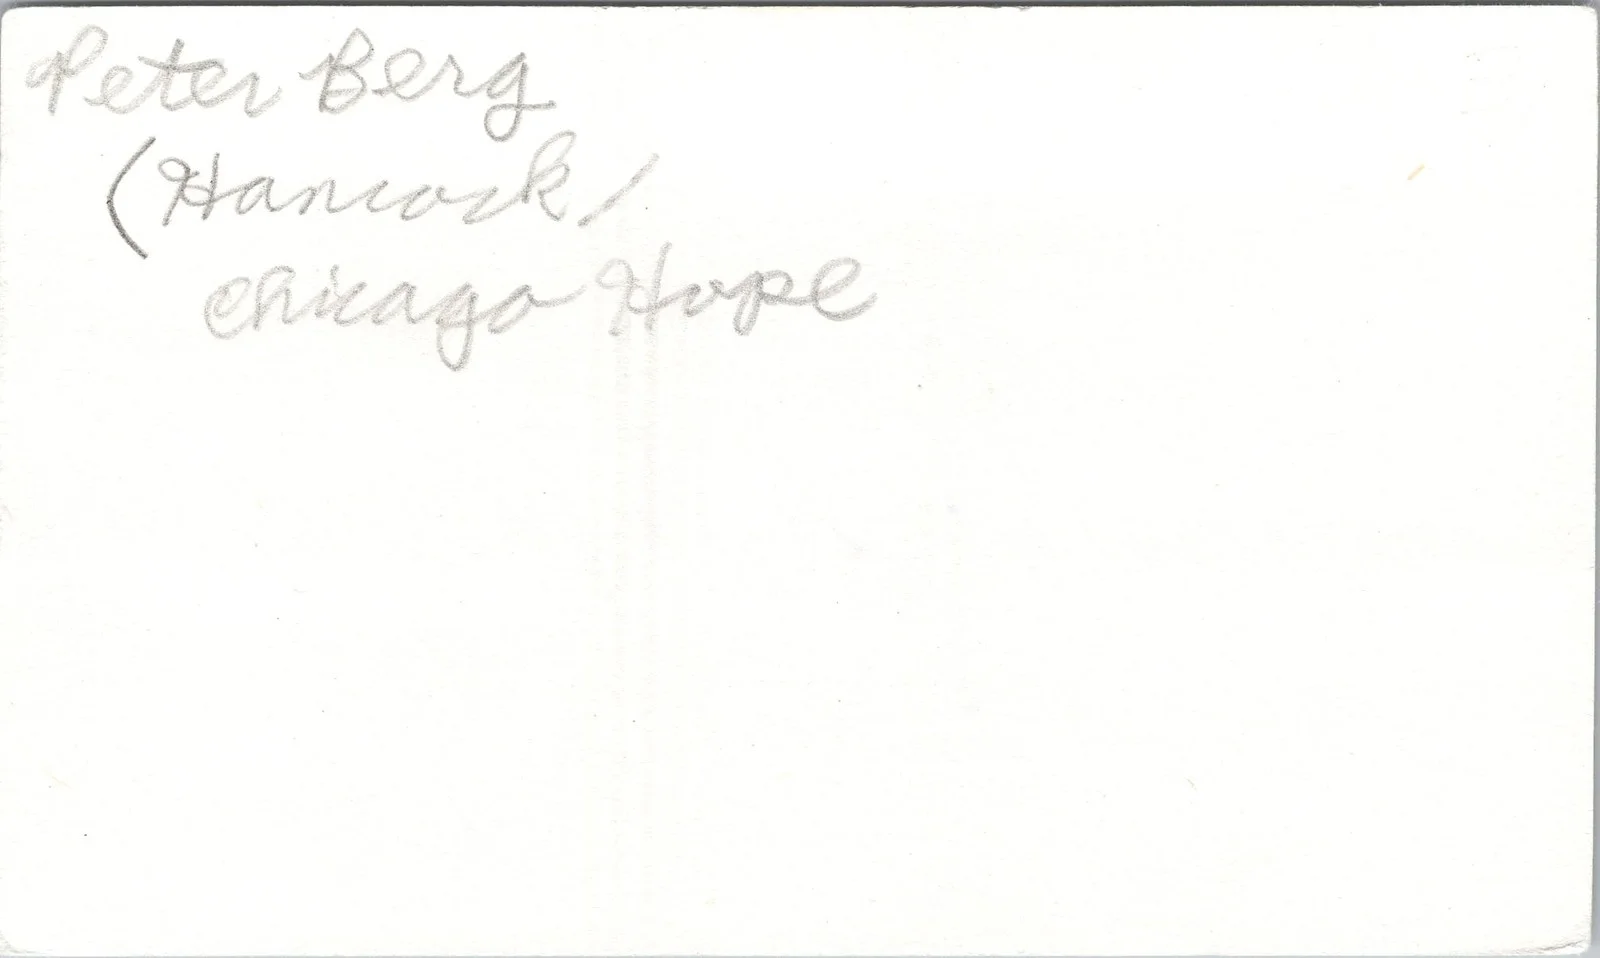 Peter Berg
(Hancock/
Chicago Hope